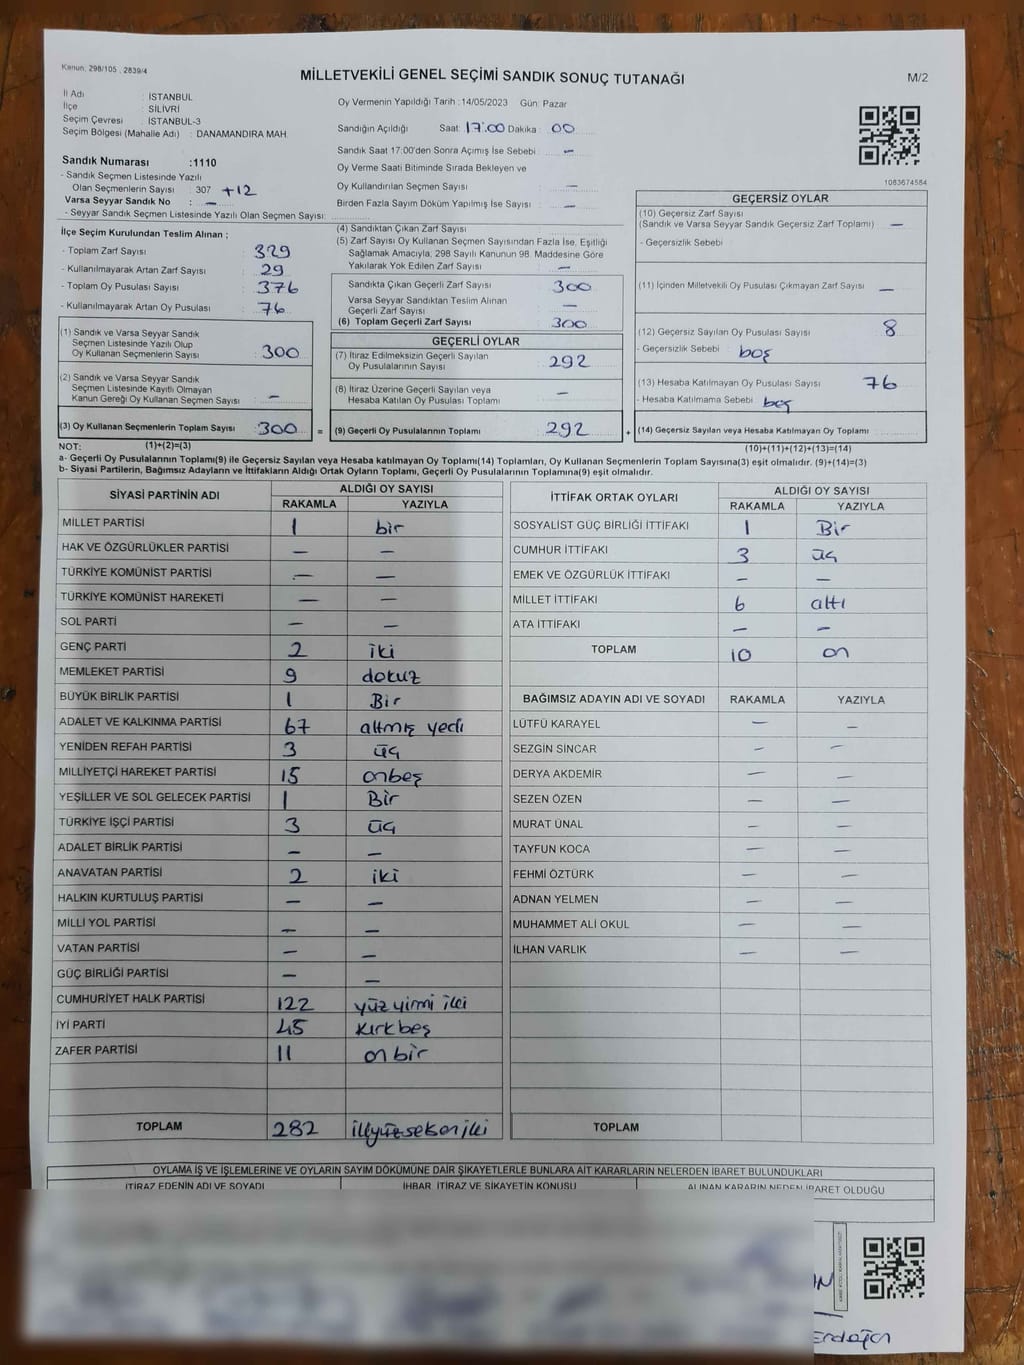 Kanun: 298/105 , 2839/4
MİLLETVEKİLİ GENEL SEÇİMİ SANDIK SONUÇ TUTANAĞI
M/2
İl Adı : İSTANBUL
İlçe : SİLİVRİ
Seçim Çevresi : İSTANBUL-3
Seçim Bölgesi (Mahalle Adı) : DANAMANDIRA MAH.
Sandık Numarası :1110
- Sandık Seçmen Listesinde Yazılı
Olan Seçmenlerin Sayısı : 307 +12
Varsa Seyyar Sandık No : —
- Seyyar Sandık Seçmen Listesinde Yazılı Olan Seçmen Sayısı:
Oy Vermenin Yapıldığı Tarih :14/05/2023 Gün: Pazar
Sandığın Açıldığı Saat: 17:00 Dakika : 00
Sandık Saat 17:00'den Sonra Açımış İse Sebebi : —
Oy Verme Saati Bitiminde Sırada Bekleyen ve
Oy Kullandırılan Seçmen Sayısı : —
Birden Fazla Sayım Döküm Yapılmış İse Sayısı : —
1083674584
İlçe Seçim Kurulundan Teslim Alınan ;
- Toplam Zarf Sayısı : 329
- Kullanılmayarak Artan Zarf Sayısı : 29
- Toplam Oy Pusulası Sayısı : 376
- Kullanılmayarak Artan Oy Pusulası : 76
(1) Sandık ve Varsa Seyyar Sandık
Seçmen Listesinde Yazılı Olup
Oy Kullanan Seçmenlerin Sayısı : 300
(2) Sandık ve Varsa Seyyar Sandık
Seçmen Listesinde Kayıtlı Olmayan
Kanun Gereği Oy Kullanan Seçmen Sayısı : —
(3) Oy Kullanan Seçmenlerin Toplam Sayısı : 300 =
(4) Sandıktan Çıkan Zarf Sayısı
(5) Zarf Sayısı Oy Kullanan Seçmen Sayısından Fazla İse, Eşitliği
Sağlamak Amacıyla, 298 Sayılı Kanunun 98. Maddesine Göre
Yakılarak Yok Edilen Zarf Sayısı : —
Sandıkta Çıkan Geçerli Zarf Sayısı : 300
Varsa Seyyar Sandıktan Teslim Alınan
Geçerli Zarf Sayısı : —
(6) Toplam Geçerli Zarf Sayısı : 300
GEÇERLİ OYLAR
(7) İtiraz Edilmeksizin Geçerli Sayılan
Oy Pusulalarının Sayısı : 292
(8) İtiraz Üzerine Geçerli Sayılan veya
Hesaba Katılan Oy Pusulası Toplamı : —
(9) Geçerli Oy Pusulalarının Toplamı : 292 +
GEÇERSİZ OYLAR
(10) Geçersiz Zarf Sayısı
(Sandık ve Varsa Seyyar Sandık Geçersiz Zarf Toplamı) : —
- Geçersizlik Sebebi :
(11) İçinden Milletvekili Oy Pusulası Çıkmayan Zarf Sayısı : —
(12) Geçersiz Sayılan Oy Pusulası Sayısı : 8
- Geçersizlik Sebebi : boş
(13) Hesaba Katılmayan Oy Pusulası Sayısı : 76
- Hesaba Katılmama Sebebi : boş
(14) Geçersiz Sayılan veya Hesaba Katılmayan Oy Toplamı :
NOT: (1)+(2)=(3) (10)+(11)+(12)+(13)=(14)
a- Geçerli Oy Pusulalarının Toplamı(9) ile Geçersiz Sayılan veya Hesaba katılmayan Oy Toplamı(14) Toplamları, Oy Kullanan Seçmenlerin Toplam Sayısına(3) eşit olmalıdır. (9)+(14)=(3)
b- Siyasi Partilerin, Bağımsız Adayların ve İttifakların Aldığı Ortak Oyların Toplamı, Geçerli Oy Pusulalarının Toplamına(9) eşit olmalıdır.
SİYASİ PARTİNİN ADI ALDIĞI OY SAYISI
RAKAMLA YAZIYLA
MİLLET PARTİSİ 1 bir
HAK VE ÖZGÜRLÜKLER PARTİSİ — —
TÜRKİYE KOMÜNİST PARTİSİ — —
TÜRKİYE KOMÜNİST HAREKETİ — —
SOL PARTİ — —
GENÇ PARTİ 2 iki
MEMLEKET PARTİSİ 9 dokuz
BÜYÜK BİRLİK PARTİSİ 1 Bir
ADALET VE KALKINMA PARTİSİ 67 altmış yedi
YENİDEN REFAH PARTİSİ 3 üç
MİLLİYETÇİ HAREKET PARTİSİ 15 onbeş
YEŞİLLER VE SOL GELECEK PARTİSİ 1 Bir
TÜRKİYE İŞÇİ PARTİSİ 3 üç
ADALET BİRLİK PARTİSİ — —
ANAVATAN PARTİSİ 2 iki
HALKIN KURTULUŞ PARTİSİ — —
MİLLİ YOL PARTİSİ — —
VATAN PARTİSİ — —
GÜÇ BİRLİĞİ PARTİSİ — —
CUMHURİYET HALK PARTİSİ 122 yüz yirmi iki
İYİ PARTİ 45 kırkbeş
ZAFER PARTİSİ 11 on bir
TOPLAM 282 ikiyüzseksen iki
İTTİFAK ORTAK OYLARI ALDIĞI OY SAYISI
RAKAMLA YAZIYLA
SOSYALİST GÜÇ BİRLİĞİ İTTİFAKI 1 Bir
CUMHUR İTTİFAKI 3 üç
EMEK VE ÖZGÜRLÜK İTTİFAKI — —
MİLLET İTTİFAKI 6 altı
ATA İTTİFAKI — —
TOPLAM 10 on
BAĞIMSIZ ADAYIN ADI VE SOYADI RAKAMLA YAZIYLA
LÜTFÜ KARAYEL — —
SEZGİN SİNCAR — —
DERYA AKDEMİR — —
SEZEN ÖZEN — —
MURAT ÜNAL — —
TAYFUN KOCA — —
FEHMİ ÖZTÜRK — —
ADNAN YELMEN — —
MUHAMMET ALİ OKUL — —
İLHAN VARLIK — —
TOPLAM
OYLAMA İŞ VE İŞLEMLERİNE VE OYLARIN SAYIM DÖKÜMÜNE DAİR ŞİKAYETLERLE BUNLARA AİT KARARLARIN NELERDEN İBARET BULUNDUKLARI
İTİRAZ EDENİN ADI VE SOYADI İHBAR, İTİRAZ VE ŞİKAYETİN KONUSU ALINAN KARARIN NEDEN İBARET OLDUĞU